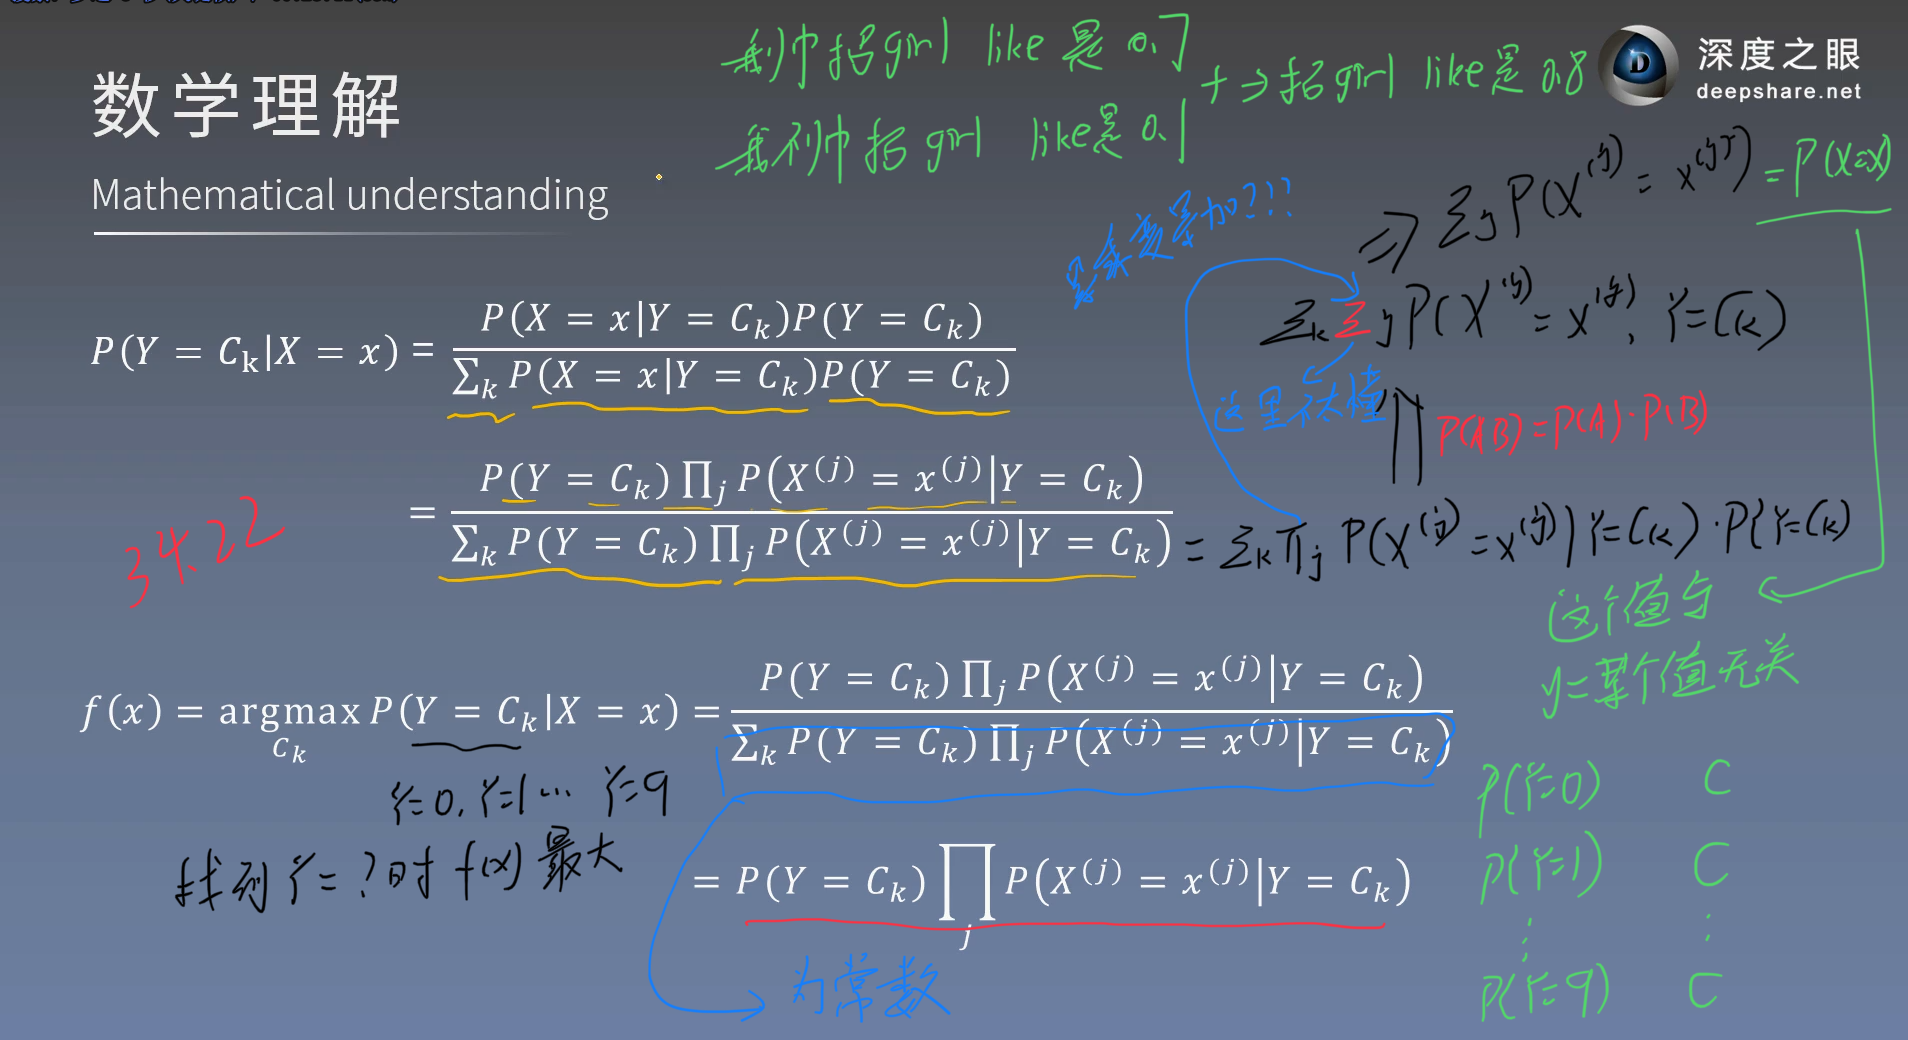 数学理解
Mathematical understanding
深度之眼
deepshare.net
girl like是 0.7
girl like是 0.1
+ → 括girl like是 0.8
⇒ Σj P(X^(j) = x^(j)) = P(X=x)
累加???
Σk Σj P(X^(j) = x^(j), Y=Ck)
这里不太懂
P(AB)=P(A)·P(B)
P(Y = Ck|X = x) = P(X = x|Y = Ck)P(Y = Ck) / Σk P(X = x|Y = Ck)P(Y = Ck)
= P(Y = Ck) ∏j P(X^(j) = x^(j)|Y = Ck) / Σk P(Y = Ck) ∏j P(X^(j) = x^(j)|Y = Ck)
= Σk ∏j P(X^(j) = x^(j) | Y=Ck) · P(Y=Ck)
34:22
这个值与
y=某个值无关
f(x) = argmax Ck P(Y = Ck|X = x) = P(Y = Ck) ∏j P(X^(j) = x^(j)|Y = Ck) / Σk P(Y = Ck) ∏j P(X^(j) = x^(j)|Y = Ck)
Y=0, Y=1 ... Y=9
找到 Y=? 时 f(x) 最大
= P(Y = Ck) ∏j P(X^(j) = x^(j)|Y = Ck)
为常数
P(Y=0) C
P(Y=1) C
⋮ ⋮
P(Y=9) C